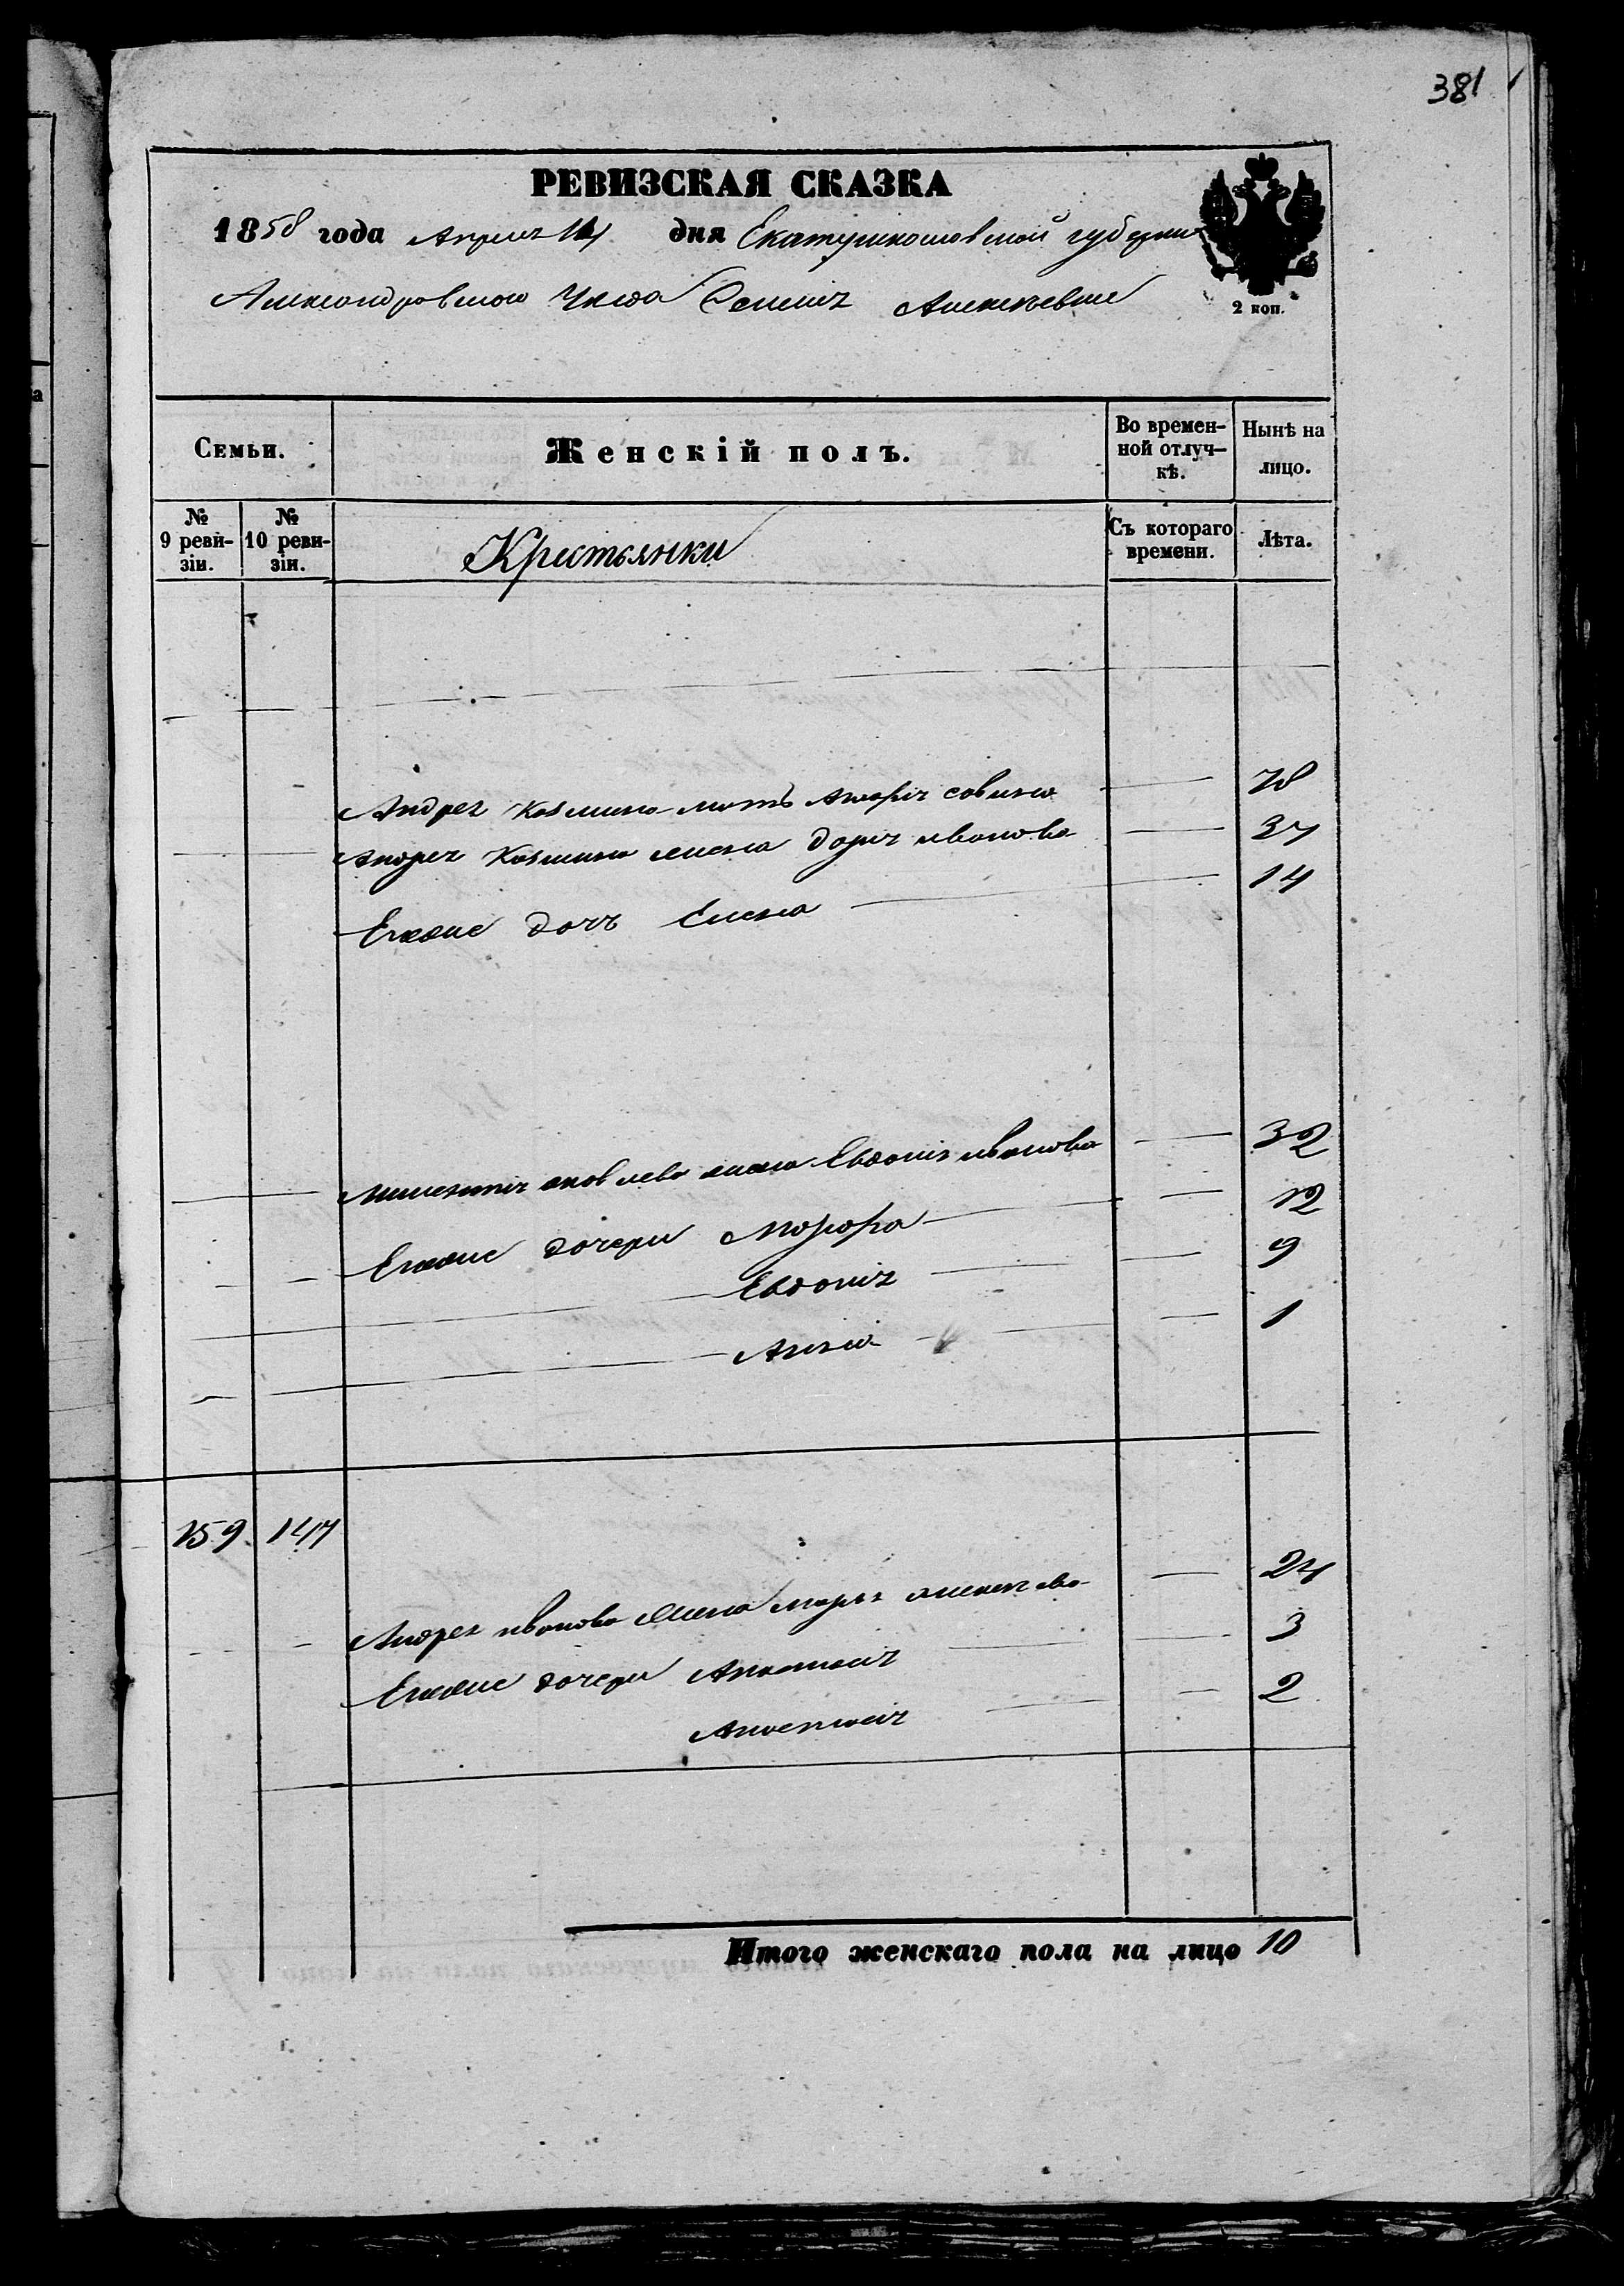 381
РЕВИЗСКАЯ СКАЗКА
1858 года Апреля 14 дня Екатеринославской губернии
Александровского Уезда Селения Алексѣевки
2 коп.
Семьи. Женскій полъ. Во времен- ной отлуч- кѣ. Нынѣ на лицо.
№ 9 реви- зіи. № 10 реви- зіи. Крестьянки Съ котораго времени. Лѣта.
Андрея Козмина мать савина 78
Андрея Козмина жена Дарія иванова 37
Егоже дочь Елена 14
яковлева жена Евдокія иванова 32
Егоже дочери 12
Евдокія 9
Анна 1
159 147
Андрея иванова жена Марья алексѣева 24
Егоже дочери 3
2
Итого женскаго пола на лицо 10